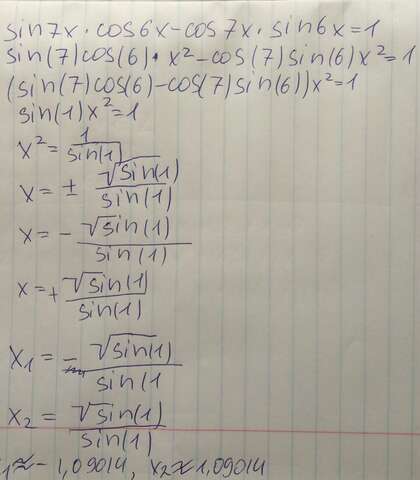 sin7x·cos6x-cos7x·sin6x=1
sin(7)cos(6)·x²-cos(7)sin(6)x²=1
(sin(7)cos(6)-cos(7)sin(6))x²=1
sin(1)x²=1
x²=1/sin(1)
x=±√sin(1)/sin(1)
x=-√sin(1)/sin(1)
x=+√sin(1)/sin(1)
x₁=-√sin(1)/sin(1
x₂=√sin(1)/sin(1)
₁≈-1,09014, x₂≈1,09014